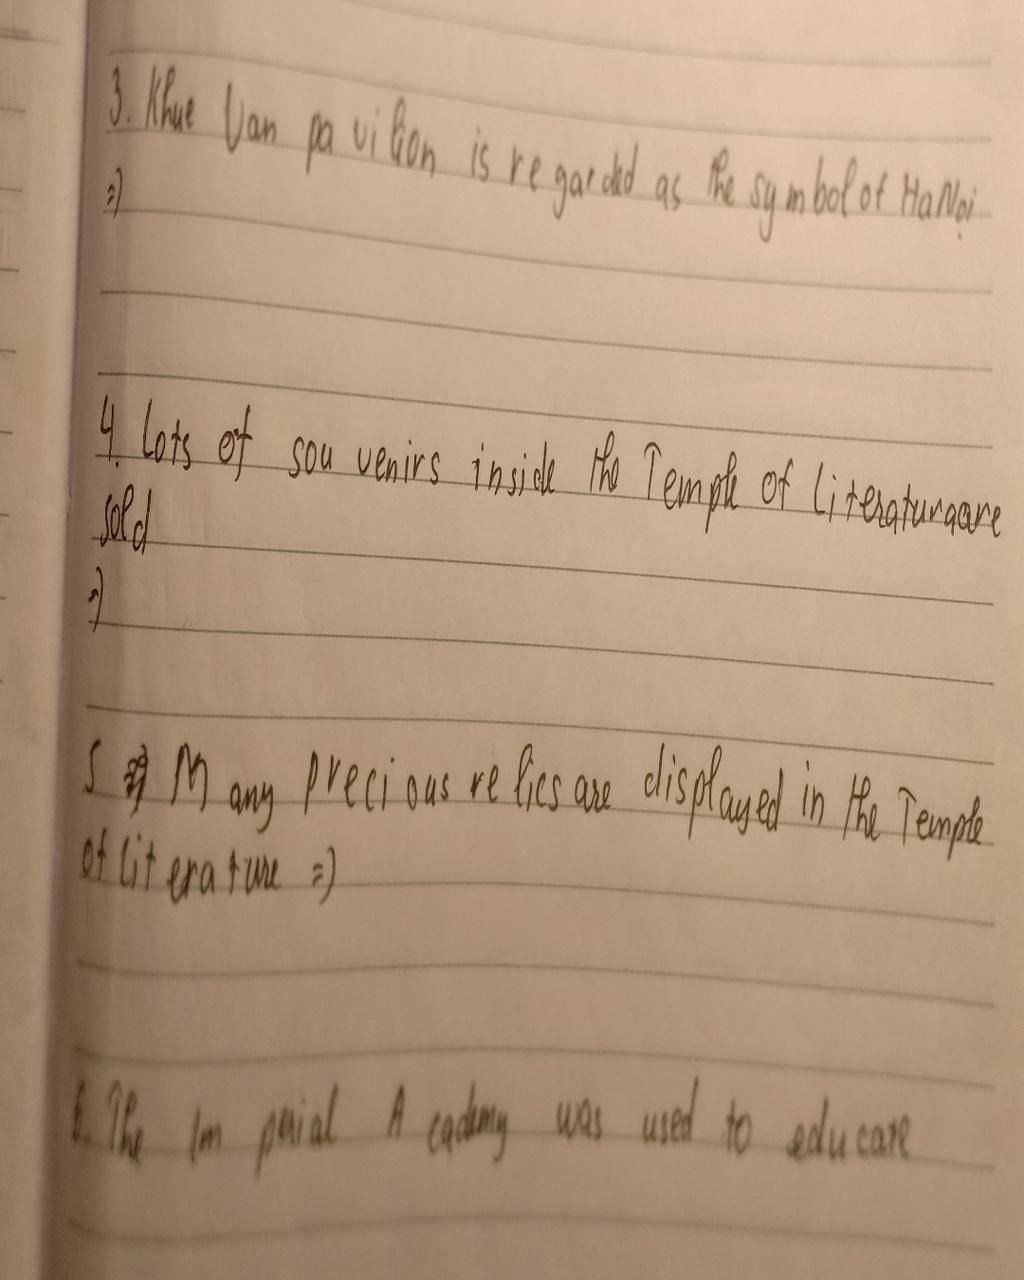 3. Khue Van pavilion is regarded as the symbol of Ha Nội
=)
4. Lots of souvenirs inside the Temple of literature are
sold
=)
5 Many precious relics are displayed in the Temple
of literature =)
6. The Imperial Academy was used to educate